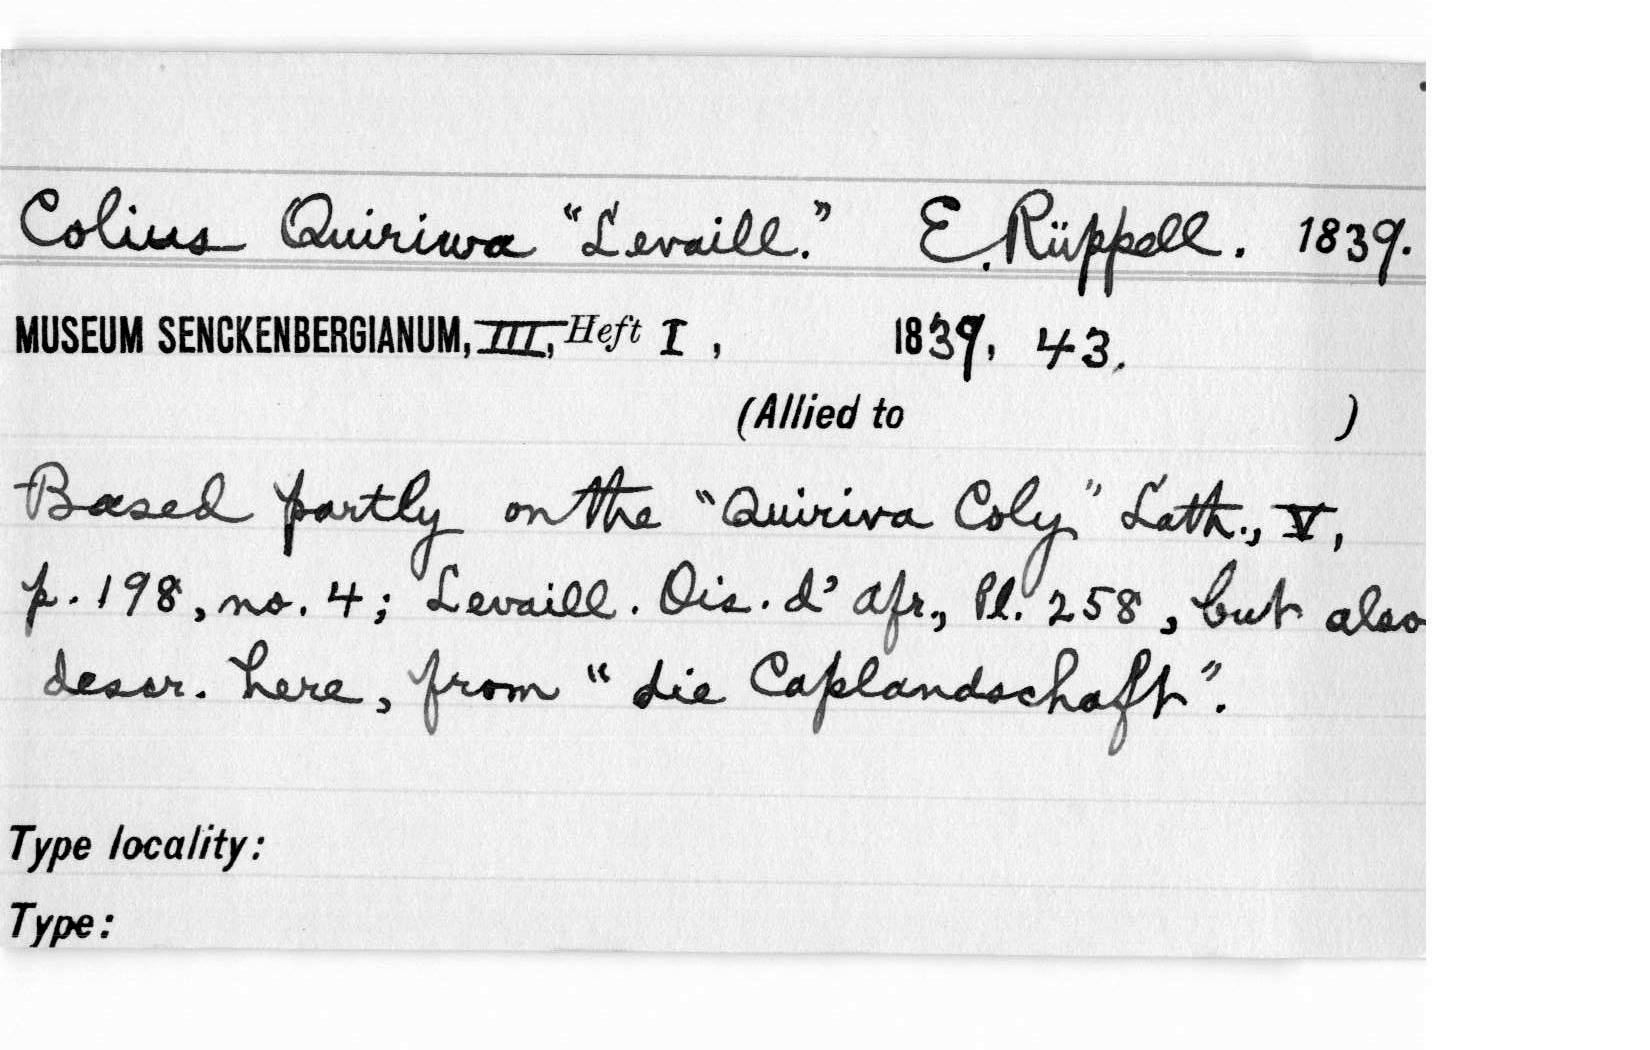 Colius Quiriwa “Levaill.” E. Rüppell. 1839.
MUSEUM SENCKENBERGIANUM, III, Heft I, 1839, 43.
(Allied to )
Based partly on the “Quiriva Coly” Lath., V,
p. 198, no. 4; Levaill. Ois. d’Afr., Pl. 258, but also
descr. here, from “die Caplandschaft”.
Type locality:
Type: